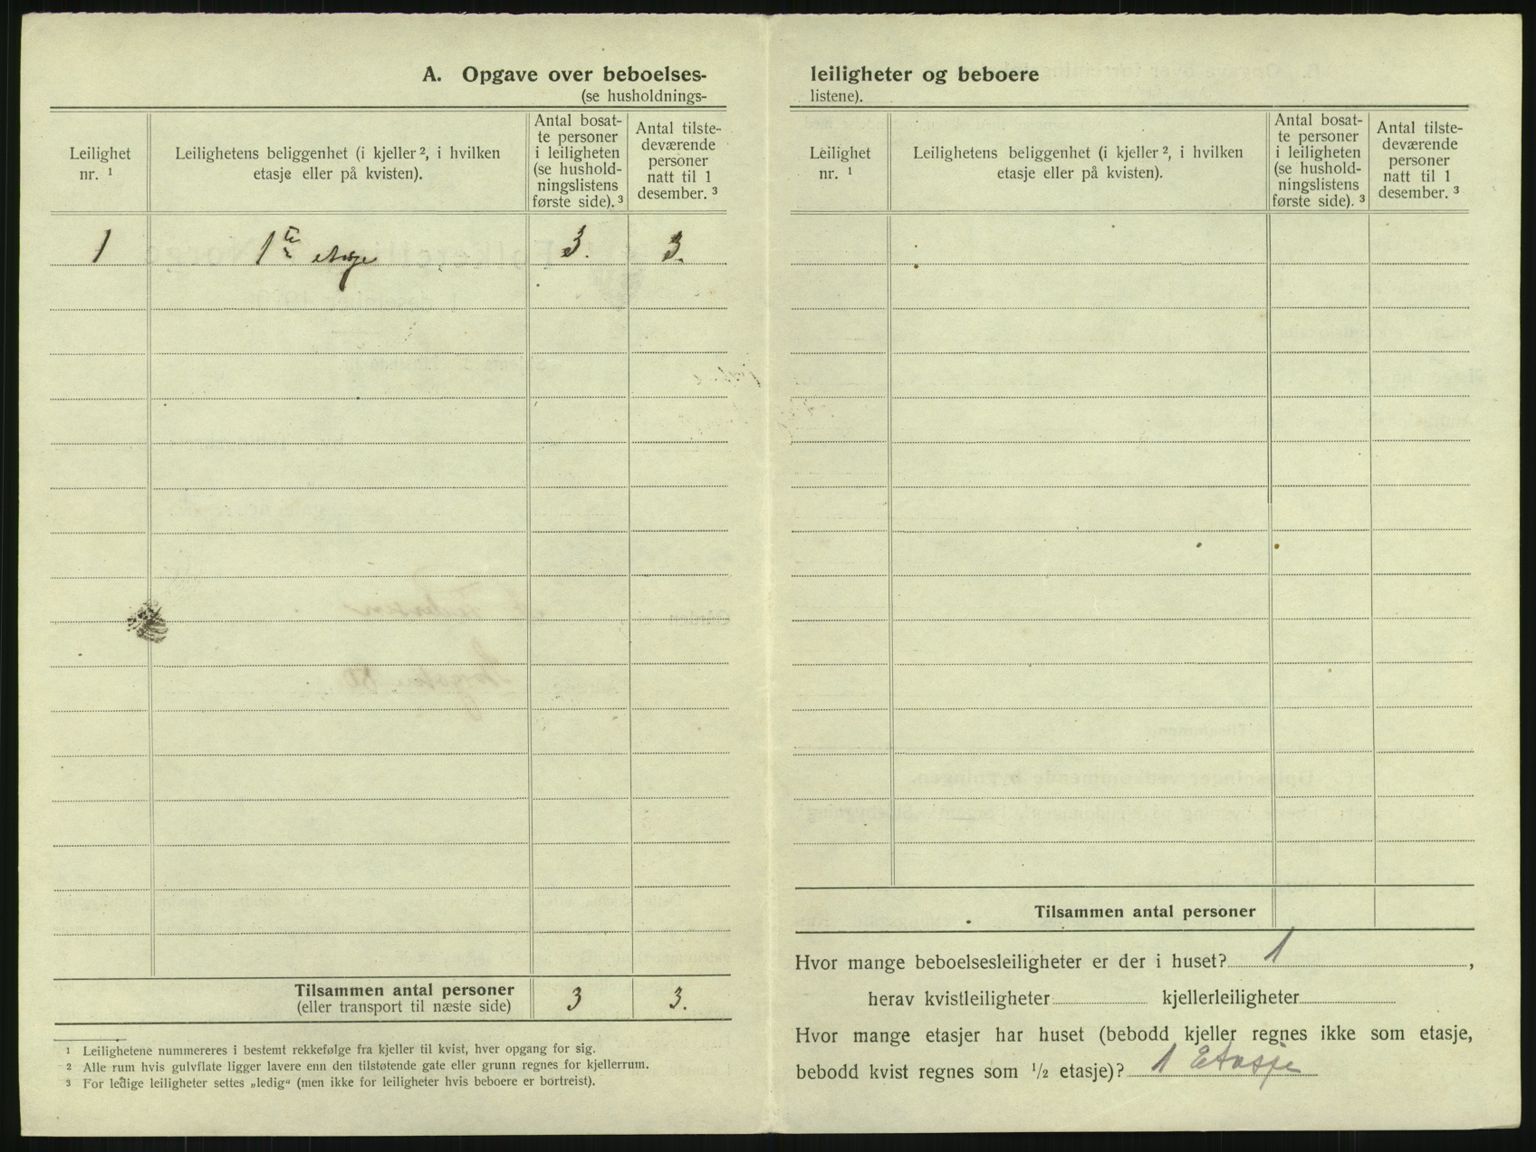 A. Opgave over beboelses-
(se husholdnings-
Leilighet
nr. ¹
Leilighetens beliggenhet (i kjeller ², i hvilken
etasje eller på kvisten).
Antal bosat-
te personer
i leiligheten
(se hushold-
ningslistens
første side). ³
Antal tilste-
deværende
personer
natt til 1
desember. ³
1 1te etasje 3. 3.
Tilsammen antal personer 3 3.
(eller transport til næste side)
¹ Leilighetene nummereres i bestemt rekkefølge fra kjeller til kvist, hver opgang for sig.
² Alle rum hvis gulvflate ligger lavere enn den tilstøtende gate eller grunn regnes for kjellerrum.
³ For ledige leiligheter settes „ledig“ (men ikke for leiligheter hvis beboere er bortreist).
leiligheter og beboere
listene).
Leilighet
nr. ¹
Leilighetens beliggenhet (i kjeller ², i hvilken
etasje eller på kvisten).
Antal bosat-
te personer
i leiligheten
(se hushold-
ningslistens
første side). ³
Antal tilste-
deværende
personer
natt til 1
desember. ³
Tilsammen antal personer
Hvor mange beboelsesleiligheter er der i huset? 1 ,
herav kvistleiligheter kjellerleiligheter
Hvor mange etasjer har huset (bebodd kjeller regnes ikke som etasje,
bebodd kvist regnes som ½ etasje)? 1 Etasje